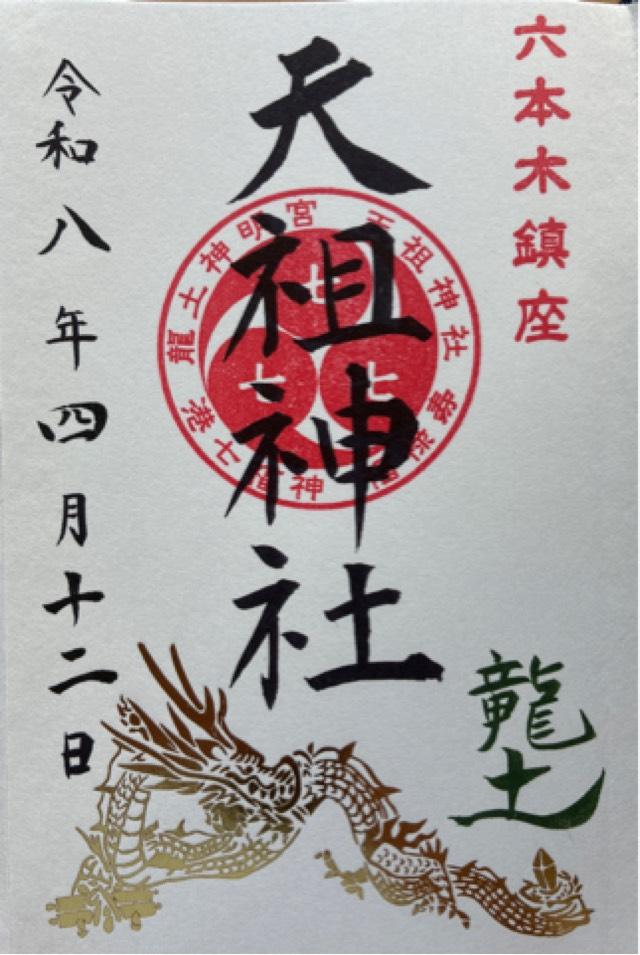 六本木鎮座
天祖神社
七
七
七
龍土神明宮
天祖神社
壽祿福
港七福神
龍土
令和八年四月十二日